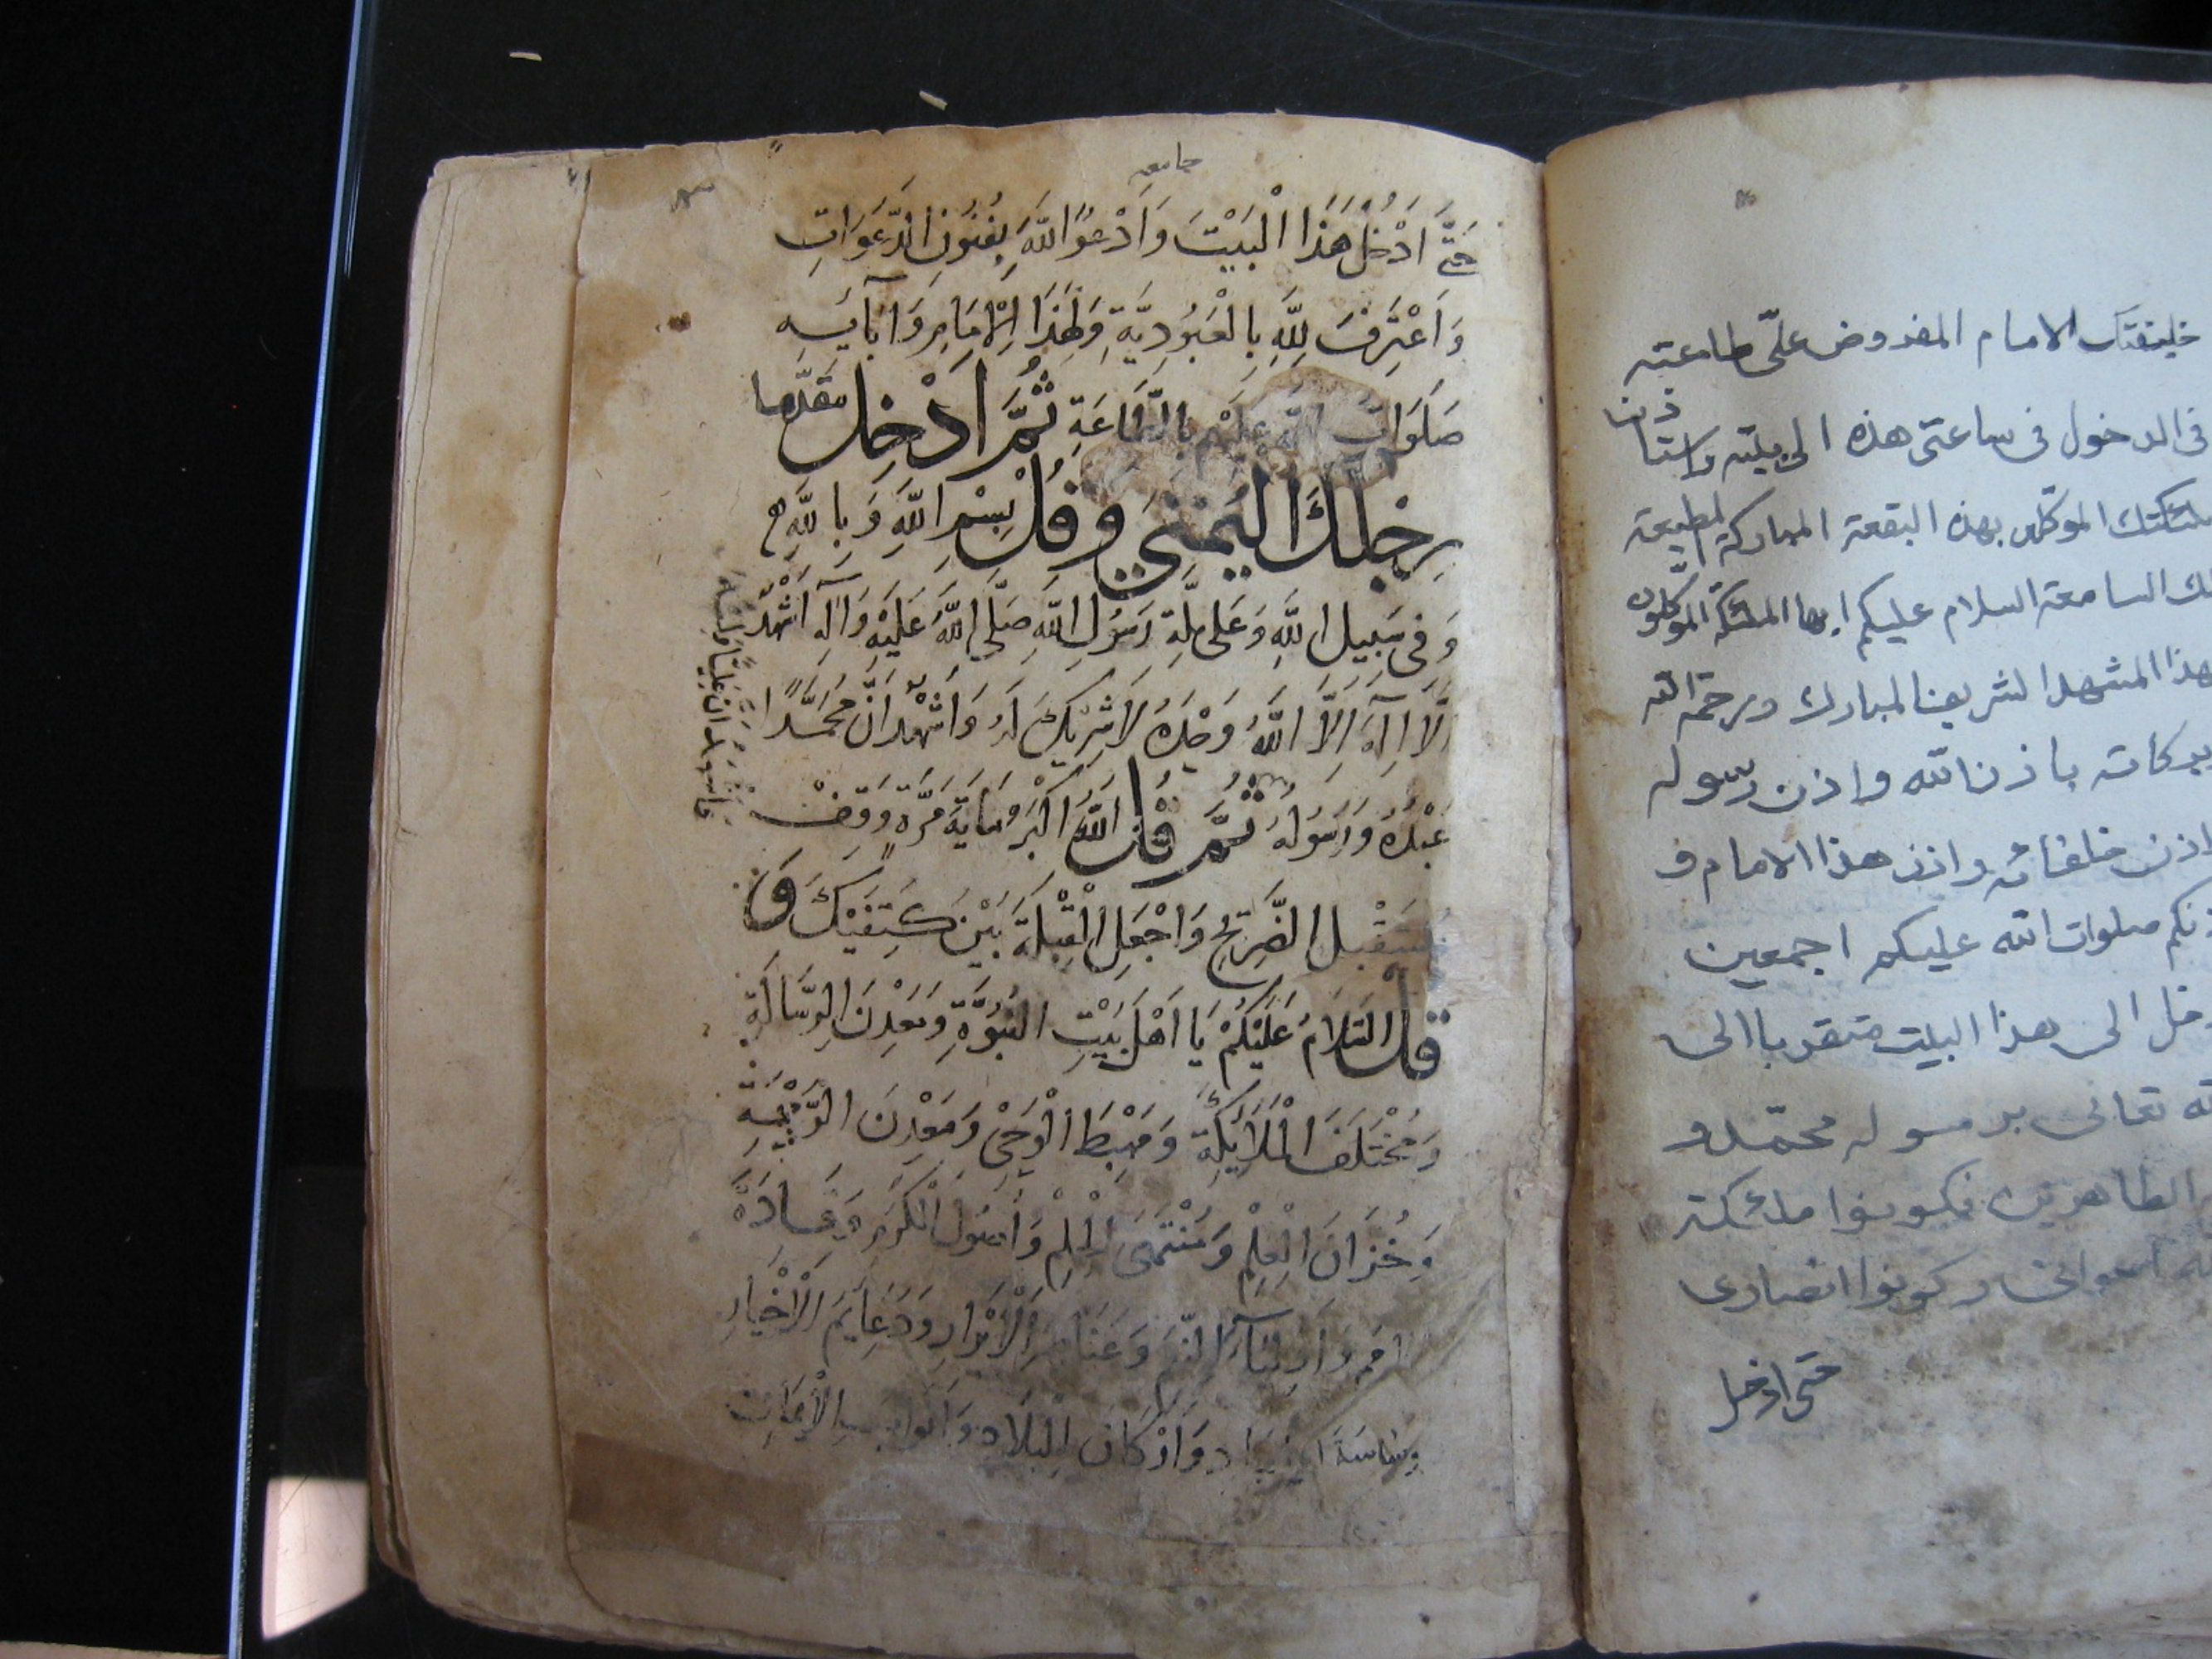 خليفتك الامام المفروض علىّ طاعته
فى الدخول فى ساعتى هذه الى بيته واستأذن
ملئكتك الموكلين بهذه البقعة المباركة المطيعة
لك السامعة السلام عليكم ايها الملئكة الموكلون
بهذا المشهد الشريف المبارك ورحمة الله
وبركاته باذن الله واذن رسوله
واذن خلفائه واذن هذا الامام و
اذنكم صلوات الله عليكم اجمعين
ادخل الى هذا البيت متقربا الى
الله تعالى برسوله محمّد و
الطاهرين فكونوا ملئكة
الله اعوانى وكونوا انصارى
حتى ادخل
جامعه
حَتَّى اَدْخُلَ هَذَا الْبَيْتَ وَاَدْعُوَ اللّٰهَ بِفُنُونِ الدَّعَوَاتِ
وَاَعْتَرِفَ لِلّٰهِ بِالْعَبُودِيَّةِ وَلِهَذَا الْاِمَامِ وَآبَائِهِ
صَلَوَاتُ اللّٰهِ عَلَيْهِمْ بِالطَّاعَةِ ثُمَّ اَدْخِل مقدّما
رِجْلَكَ اليُمْنَي وَقُلْ بِسْمِ اللّٰهِ وَبِاللّٰهِ
وَفِى سَبِيلِ اللّٰهِ وَعَلَى مِلَّةِ رَسُولِ اللّٰهِ صَلَّى اللّٰهُ عَلَيْهِ وَآلِهِ اَشْهَدُ
اَنْ لَا اِلٰهَ اِلَّا اللّٰهُ وَحْدَهُ لَا شَرِيكَ لَهُ وَاَشْهَدُ اَنَّ مُحَمَّدًا
عَبْدُهُ وَرَسُولُهُ ثُمَّ قُلْ اللّٰهُ اَكْبَرُ مِايَةَ مَرَّةٍ وَقِفْ
مُسْتَقْبِلَ الضَّرِيحِ وَاجْعَلِ الْقِبْلَةَ بَيْنَ كَتِفَيْكَ وَ
قُلْ السَّلَامُ عَلَيْكُمْ يَا اَهْلَ بَيْتِ النُّبُوَّةِ وَمَعْدِنَ الرِّسَالَةِ
وَمُخْتَلَفَ الْمَلَائِكَةِ وَمَهْبِطَ الْوَحْىِ وَمَعْدِنَ الرَّحْمَةِ
وَخُزَّانَ الْعِلْمِ وَمُنْتَهَى الْحِلْمِ وَاُصُولَ الْكَرَمِ وَقَادَةَ
الامم وَاَوْلِيَآءَ النِّعَمِ وَعَنَاصِرَ الْاَبْرَارِ وَدَعَائِمَ الْاَخْيَارِ
وَسَاسَةَ الْعِبَادِ وَاَرْكَانَ الْبِلَادِ وَاَبْوَابَ الْاِيمَانِ